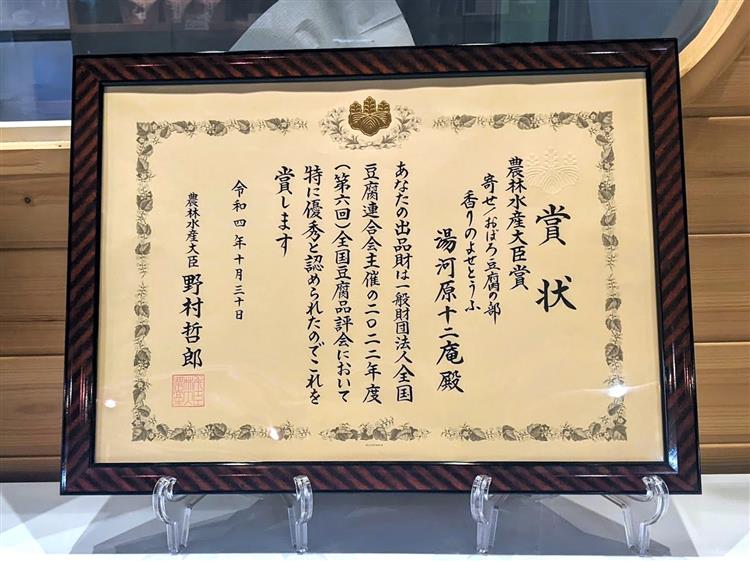 賞状
農林水産大臣賞
寄せ/おぼろ豆腐の部
香りのよせとうふ
湯河原十二庵殿
あなたの出品財は一般財団法人全国
豆腐連合会主催の二〇二二年度
(第六回)全国豆腐品評会において
特に優秀と認められたのでこれを
賞します
令和四年十月三十日
農林水産大臣 野村哲郎